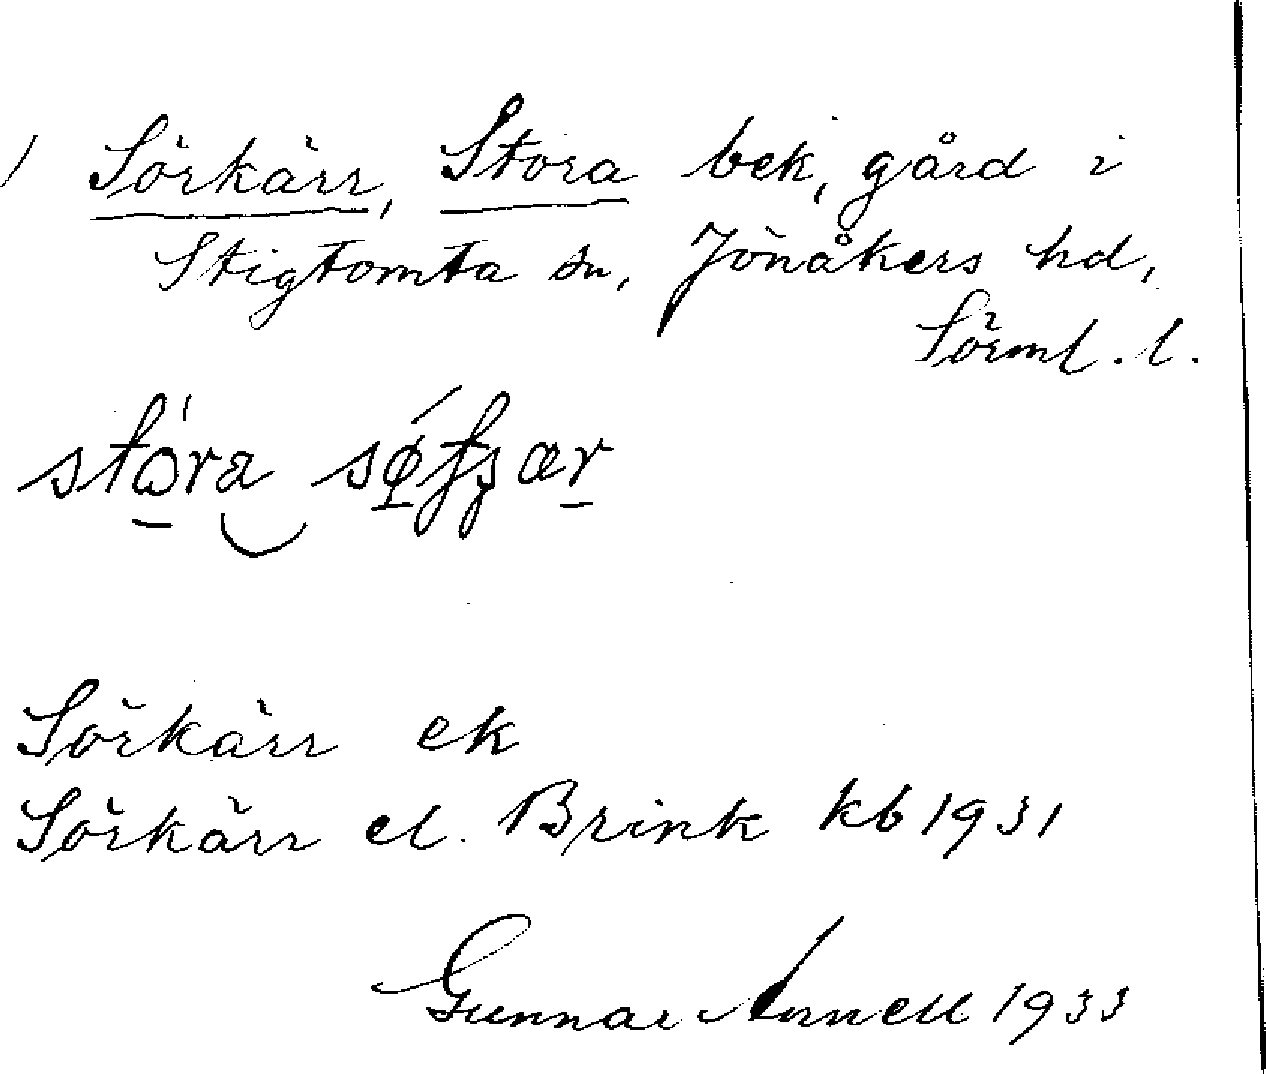 / Sörkärr, Stora bek, gård i
Stigtomta sn, Jönåkers hd,
Sörml. l.
stora
Sörkärr ek
Sörkärr el. Brink kb 1931
Gunnar Arnell 1933